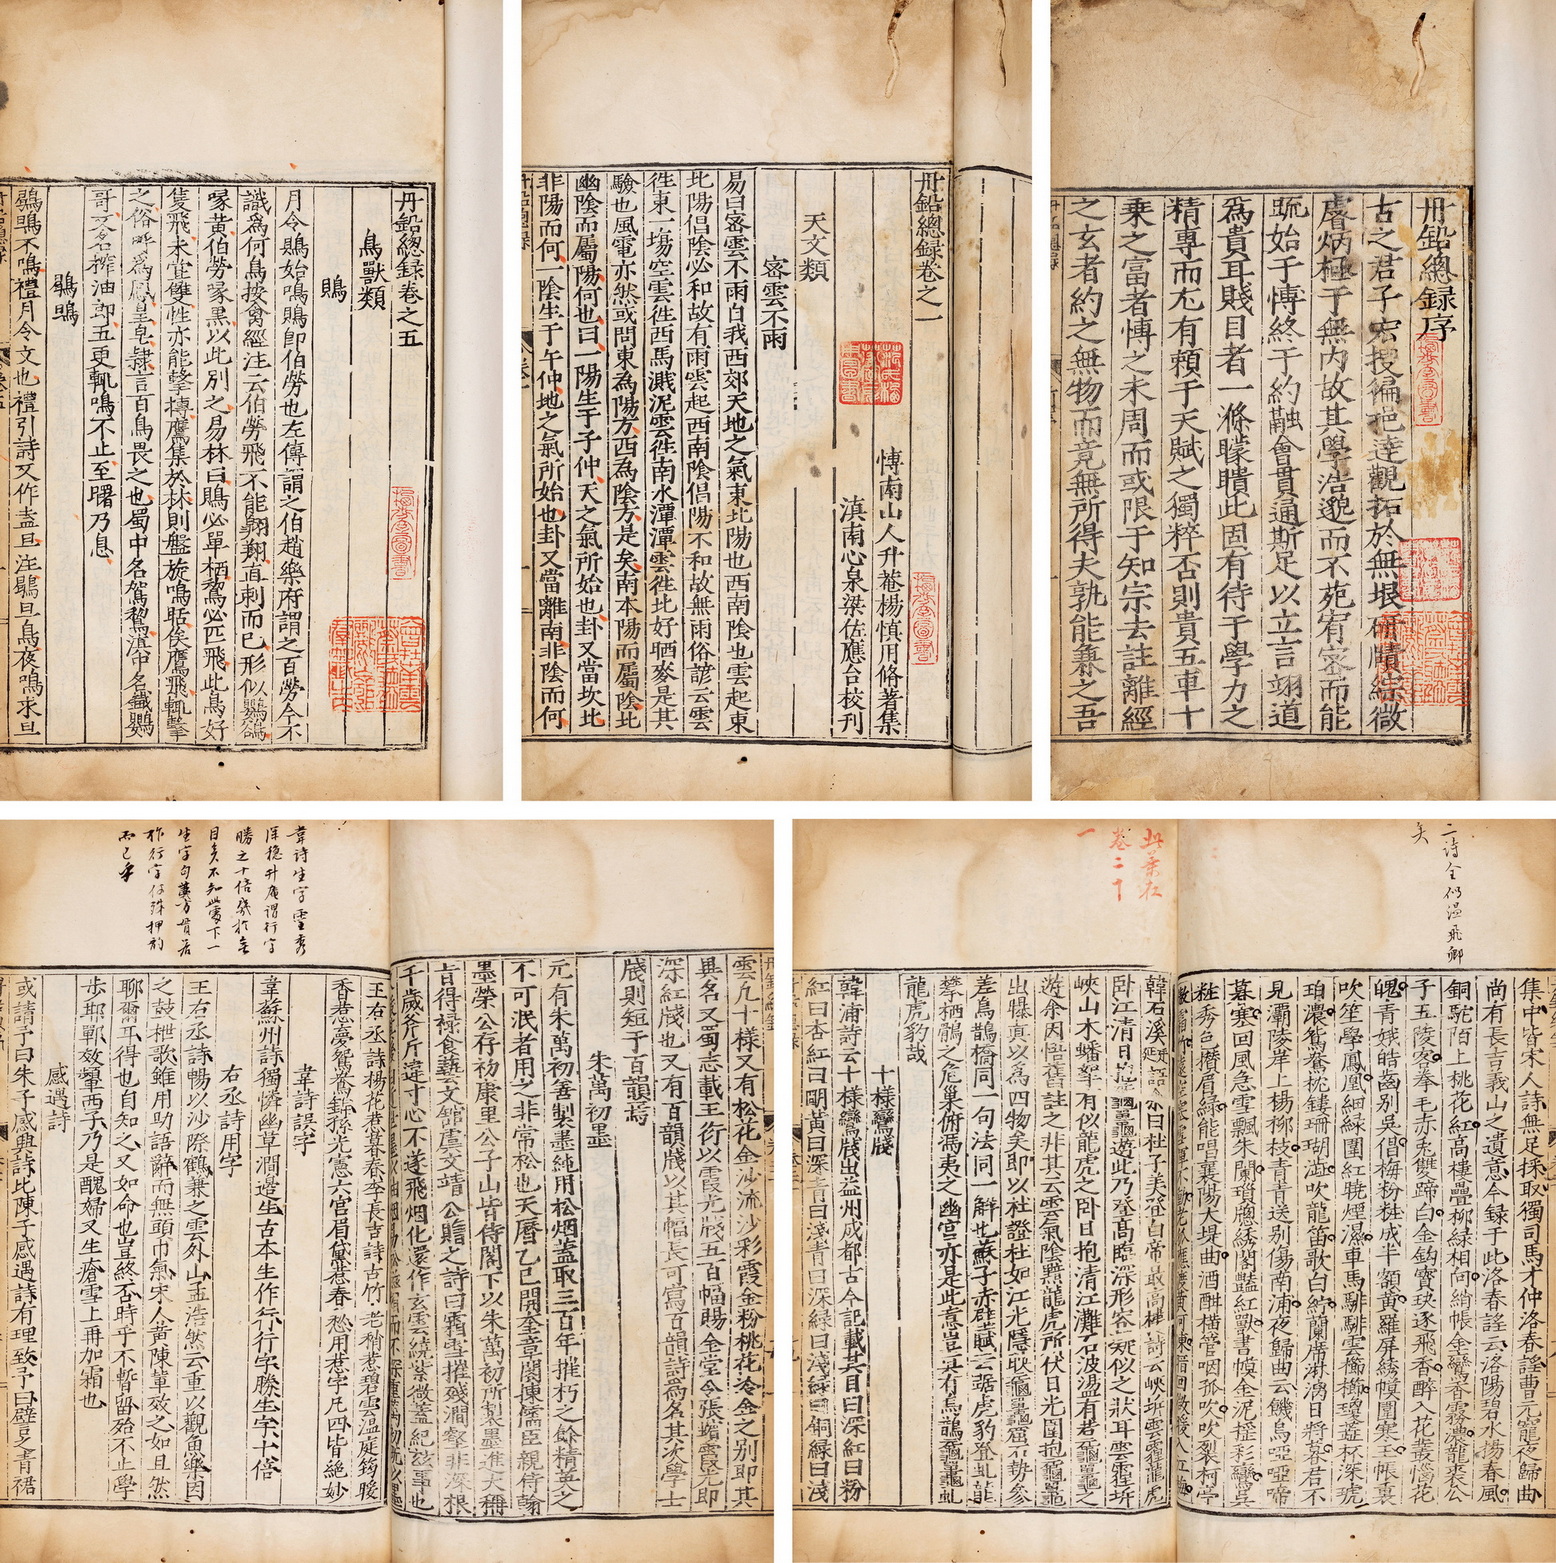 丹鉛總錄序
古之君子宏搜徧挹達觀拓於無垠研賾綜微
膚炳極于無內故其學浩邈而不苑宥密而能
疏始于博終于約融會貫通斯足以立言翊道
爲貴耳賤目者一滌矇瞶此固有待于學力之
精專而尤有賴于天賦之獨粹否則貴五車十
乗之富者博之未周而或限于知宗去註離經
之玄者約之無物而竟無所得夫孰能兼之吾
丹鉛總錄卷之一
博南山人升菴楊慎用脩著集
滇南心泉梁佐應台校刊
天文類
密雲不雨
易曰密雲不雨自我西郊天地之氣東北陽也西南陰也雲起東
北陽倡陰必和故有雨雲起西南陰倡陽不和故無雨俗諺云雲
徃東一塲空雲徃西馬濺泥雲徃南水潭潭雲徃北好晒麥是其
驗也風電亦然或問東為陽方西為陰方是矣南本陽而屬陰北
幽陰而屬陽何也曰一陽生于子仲天之氣所始也卦又當坎北
非陽而何一陰生于午仲地之氣所始也卦又當離南非陰而何
丹鉛總録卷之五
鳥獸類
鵙
月令鵙始鳴鵙即伯勞也左傳謂之伯趙樂府謂之百勞今不
識爲何鳥按禽經注云伯勞飛不能翔翔直刺而已形似鸚鵒
喙黃伯勞喙黑以此別之易林曰鵙必單栖鴛必匹飛此鳥好
隻飛未嘗雙性亦能擊摶鷹集於林則盤旋鳴聒俟鷹飛輒擊
之俗呼為鳳皇皂隷言百鳥畏之也蜀中名駕犂滇中名鐵鸚
哥又名榨油郎五更輒鳴不止至曙乃息
鶡鴠
鶡鴠不鳴禮月令文也禮引詩又作盍旦注鶡旦鳥夜鳴求旦
二詩全似溫飛卿
矣
集中皆宋人詩無足採取獨司馬才仲洛春謠曹元寵夜歸曲
尚有長吉義山之遺意今録于此洛春謠云洛陽碧水揚春風
銅駝陌上桃花紅高樓疊柳綠相向綃帳金鸞香霧濃龍裘公
子五陵客拳毛赤兎雙蹄白金鈎寶玦逐飛香醉入花叢惱花
魄青娥皓齒別吳倡梅粉粧成半額黃羅屏綉幙圍寒玉帳裏
吹笙學鳳凰細綠圍紅曉煙濕車馬騑騑雲櫛櫛瓊蘂杯深琥
珀濃鴛鴦枕鏤珊瑚澁吹龍笛歌白紵蘭席淋漓日將暮君不
見灞陵岸上楊柳枝青青送別傷南浦夜歸曲云饑烏啞啞啼
暮寒回風急雪飄朱闌瑣牕綉閣豔紅獸畫幙金泥搖彩鸞吳
粧秀色攅眉綠能唱襄陽大堤曲酒酣橫管咽孤吹吹裂柯亭
此葉在
卷二十
一
韓石溪
臥江清日抱黿鼉遊此乃登高臨深形容疑似之狀耳雲霾坼
峽山木蟠拏有似龍虎之臥日抱清江灘石波盪有若黿鼉之
遊余因悟舊註之非其云雲氣陰黯龍虎所伏日光圍抱黿鼉
出曝真以為四物矣即以杜證杜如江光隱映黿鼉窟石勢參
差烏鵲橋同一句法同一解也蘇子赤壁賦云踞虎豹登虬龍
攀栖鶻之危巢俯馮夷之幽宮亦是此意豈真有烏鵲黿鼉虬
龍虎豹哉
十樣鸞牋
韓浦詩云十樣鸞牋出益州成都古今記載其目曰深紅曰粉
紅曰杏紅曰明黃曰深青曰淺青曰深綠曰淺綠曰銅綠曰淺
雲凡十樣又有松花金沙流沙彩霞金粉桃花冷金之別即其
異名又蜀志載王衍以霞光牋五百幅賜金堂令張蠙霞光即
深紅牋也又有百韻牋以其幅長可寫百韻詩為名其次學士
牋則短于百韻焉
朱萬初墨
元有朱萬初善製墨純用松烟盖取三百年摧朽之餘精英之
不可泯者用之非常松也天曆乙巳開奎章閣揀儒臣親侍翰
墨榮公存初康里公子山皆侍閣下以朱萬初所製墨進大稱
旨得禄食藝文舘虞文靖公贍之詩曰霜雪摧殘澗壑非深根
千歲斧斤違寸心不逐飛烟化還作玄雲繞紫微蓋紀兹事也
韋詩生字靈秀
深穩升庵謂行字
勝之十倍
目亥不知此處下一
生字
作行字
而已乎
王右丞詩楊花惹暮春李長吉詩古竹老梢惹碧雲溫庭筠暖
香惹夢鴛鴦錦孫光憲六宮眉黛惹春愁用惹字凡四皆絶妙
韋詩誤字
韋蘇州詩獨憐幽草澗邉生古本生作行行字勝生字十倍
右丞詩用字
王右丞詩暢以沙際鶴兼之雲外山孟浩然云重以觀魚樂因
之鼓枻歌雖用助語辭而無頭巾氣宋人黃陳輩效之如且然
聊爾耳得也自知之又如命也豈終否時乎不暫留殆不止學
歩邯鄲效顰西子乃是醜婦又生瘡雪上再加霜也
感遇詩
或請予曰朱子感興詩比陳子感遇詩有理致予曰譬之青裙